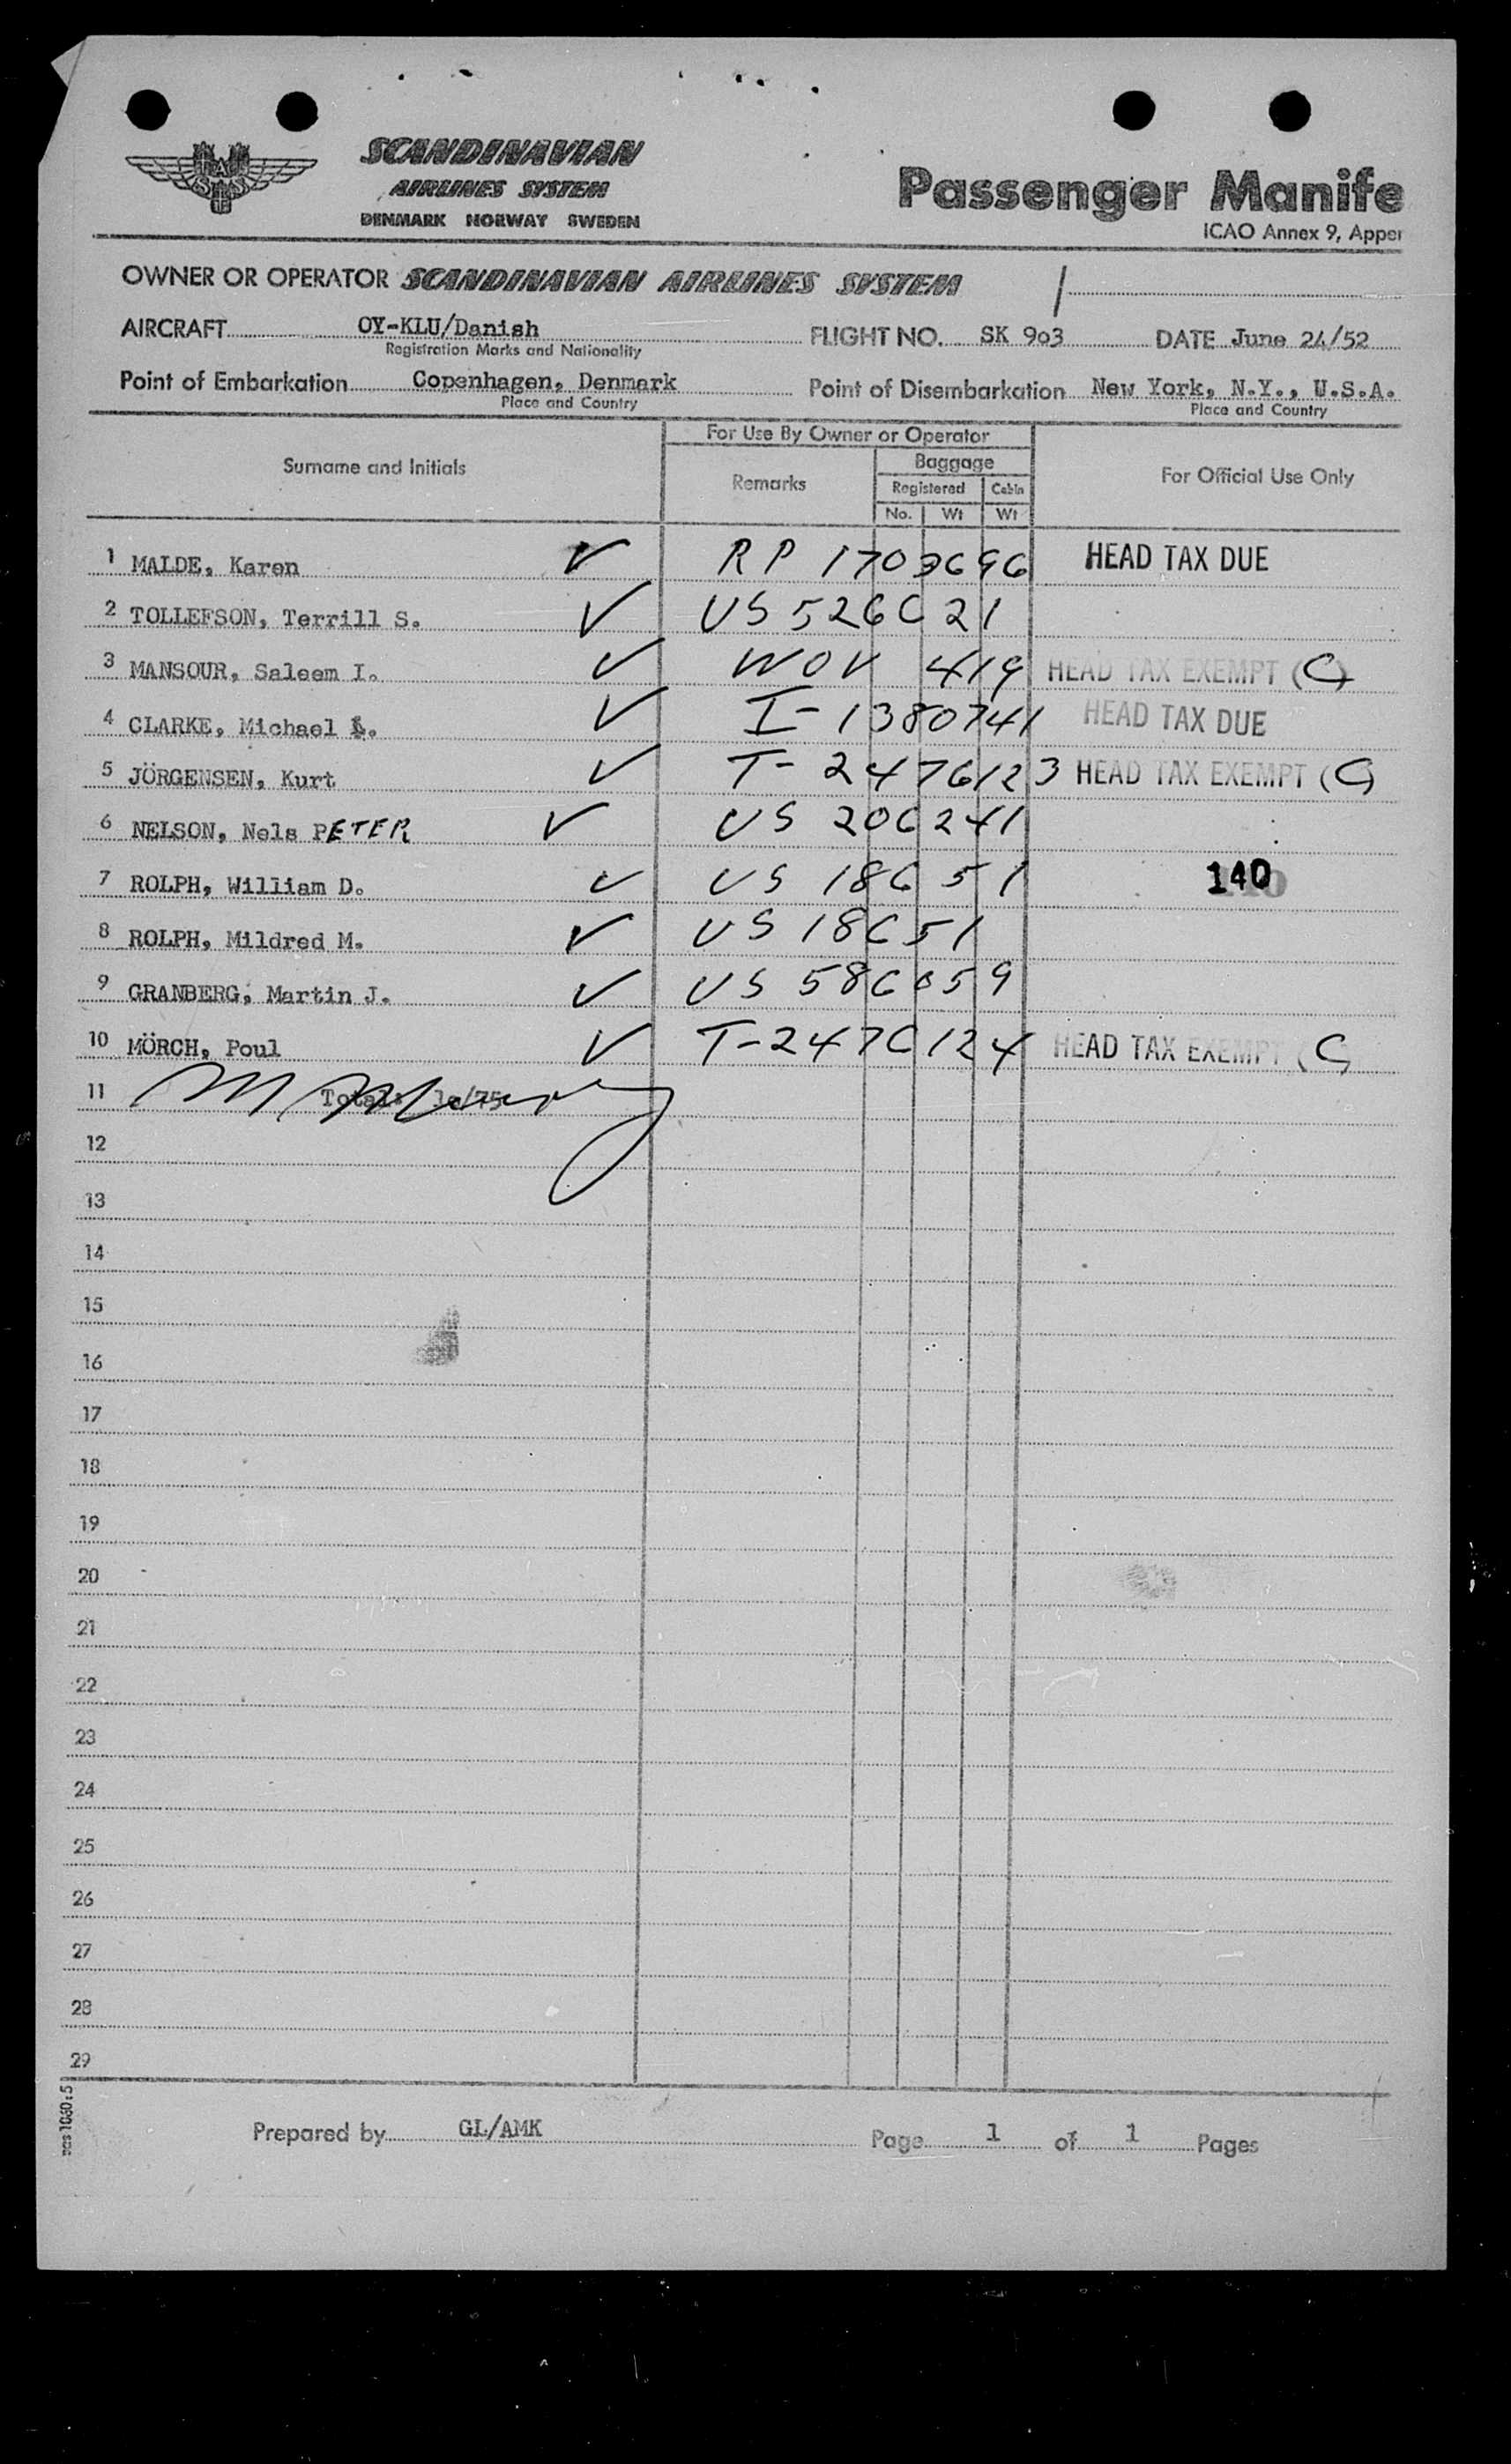 SAS
SCANDINAVIAN
AIRLINES SYSTEM
DENMARK NORWAY SWEDEN
Passenger Manife
ICAO Annex 9, Apper
OWNER OR OPERATOR SCANDINAVIAN AIRLINES SYSTEM
AIRCRAFT OY-KLU/Danish FLIGHT NO. SK 903 DATE June 24/52
Registration Marks and Nationality
Point of Embarkation Copenhagen, Denmark Point of Disembarkation New York, N.Y., U.S.A.
Place and Country Place and Country
For Use By Owner or Operator
Surname and Initials Remarks Baggage For Official Use Only
Registered Cabin
No. Wt Wt
1 MALDE, Karen ✓ RP 1703696 HEAD TAX DUE
2 TOLLEFSON, Terrill S. ✓ US 526021
3 MANSOUR, Saleem I. ✓ WOV 419 HEAD TAX EXEMPT (C)
4 CLARKE, Michael L. ✓ I-1380741 HEAD TAX DUE
5 JÖRGENSEN, Kurt ✓ T-2476123 HEAD TAX EXEMPT (C)
6 NELSON, Nels PETER ✓ US 206241
7 ROLPH, William D. ✓ US 18651 140
8 ROLPH, Mildred M. ✓ US 18651
9 GRANBERG, Martin J. ✓ US 586059
10 MÖRCH, Poul ✓ T-2476124 HEAD TAX EXEMPT (C)
11 Total: 10/75
12
13
14
15
16
17
18
19
20
21
22
23
24
25
26
27
28
29
Prepared by GL/AMK Page 1 of 1 Pages